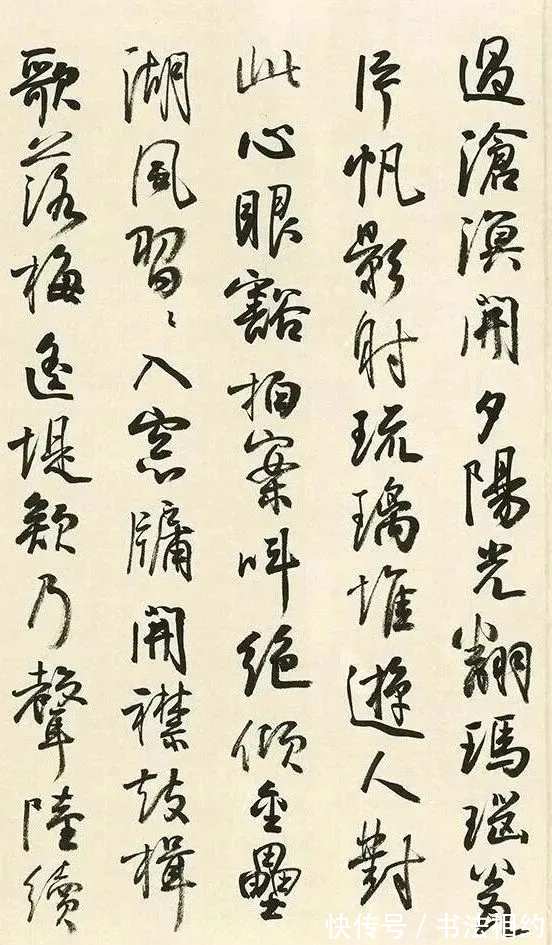 過滄溟開夕陽光翻瑪瑙翁
片帆影射琉璃堆遊人對
此心眼豁拍案叫絶傾金罍
湖風習〻入窓牖開襟鼓楫
歌落梅遙堤欸乃聲陸續
快传号/书法相约